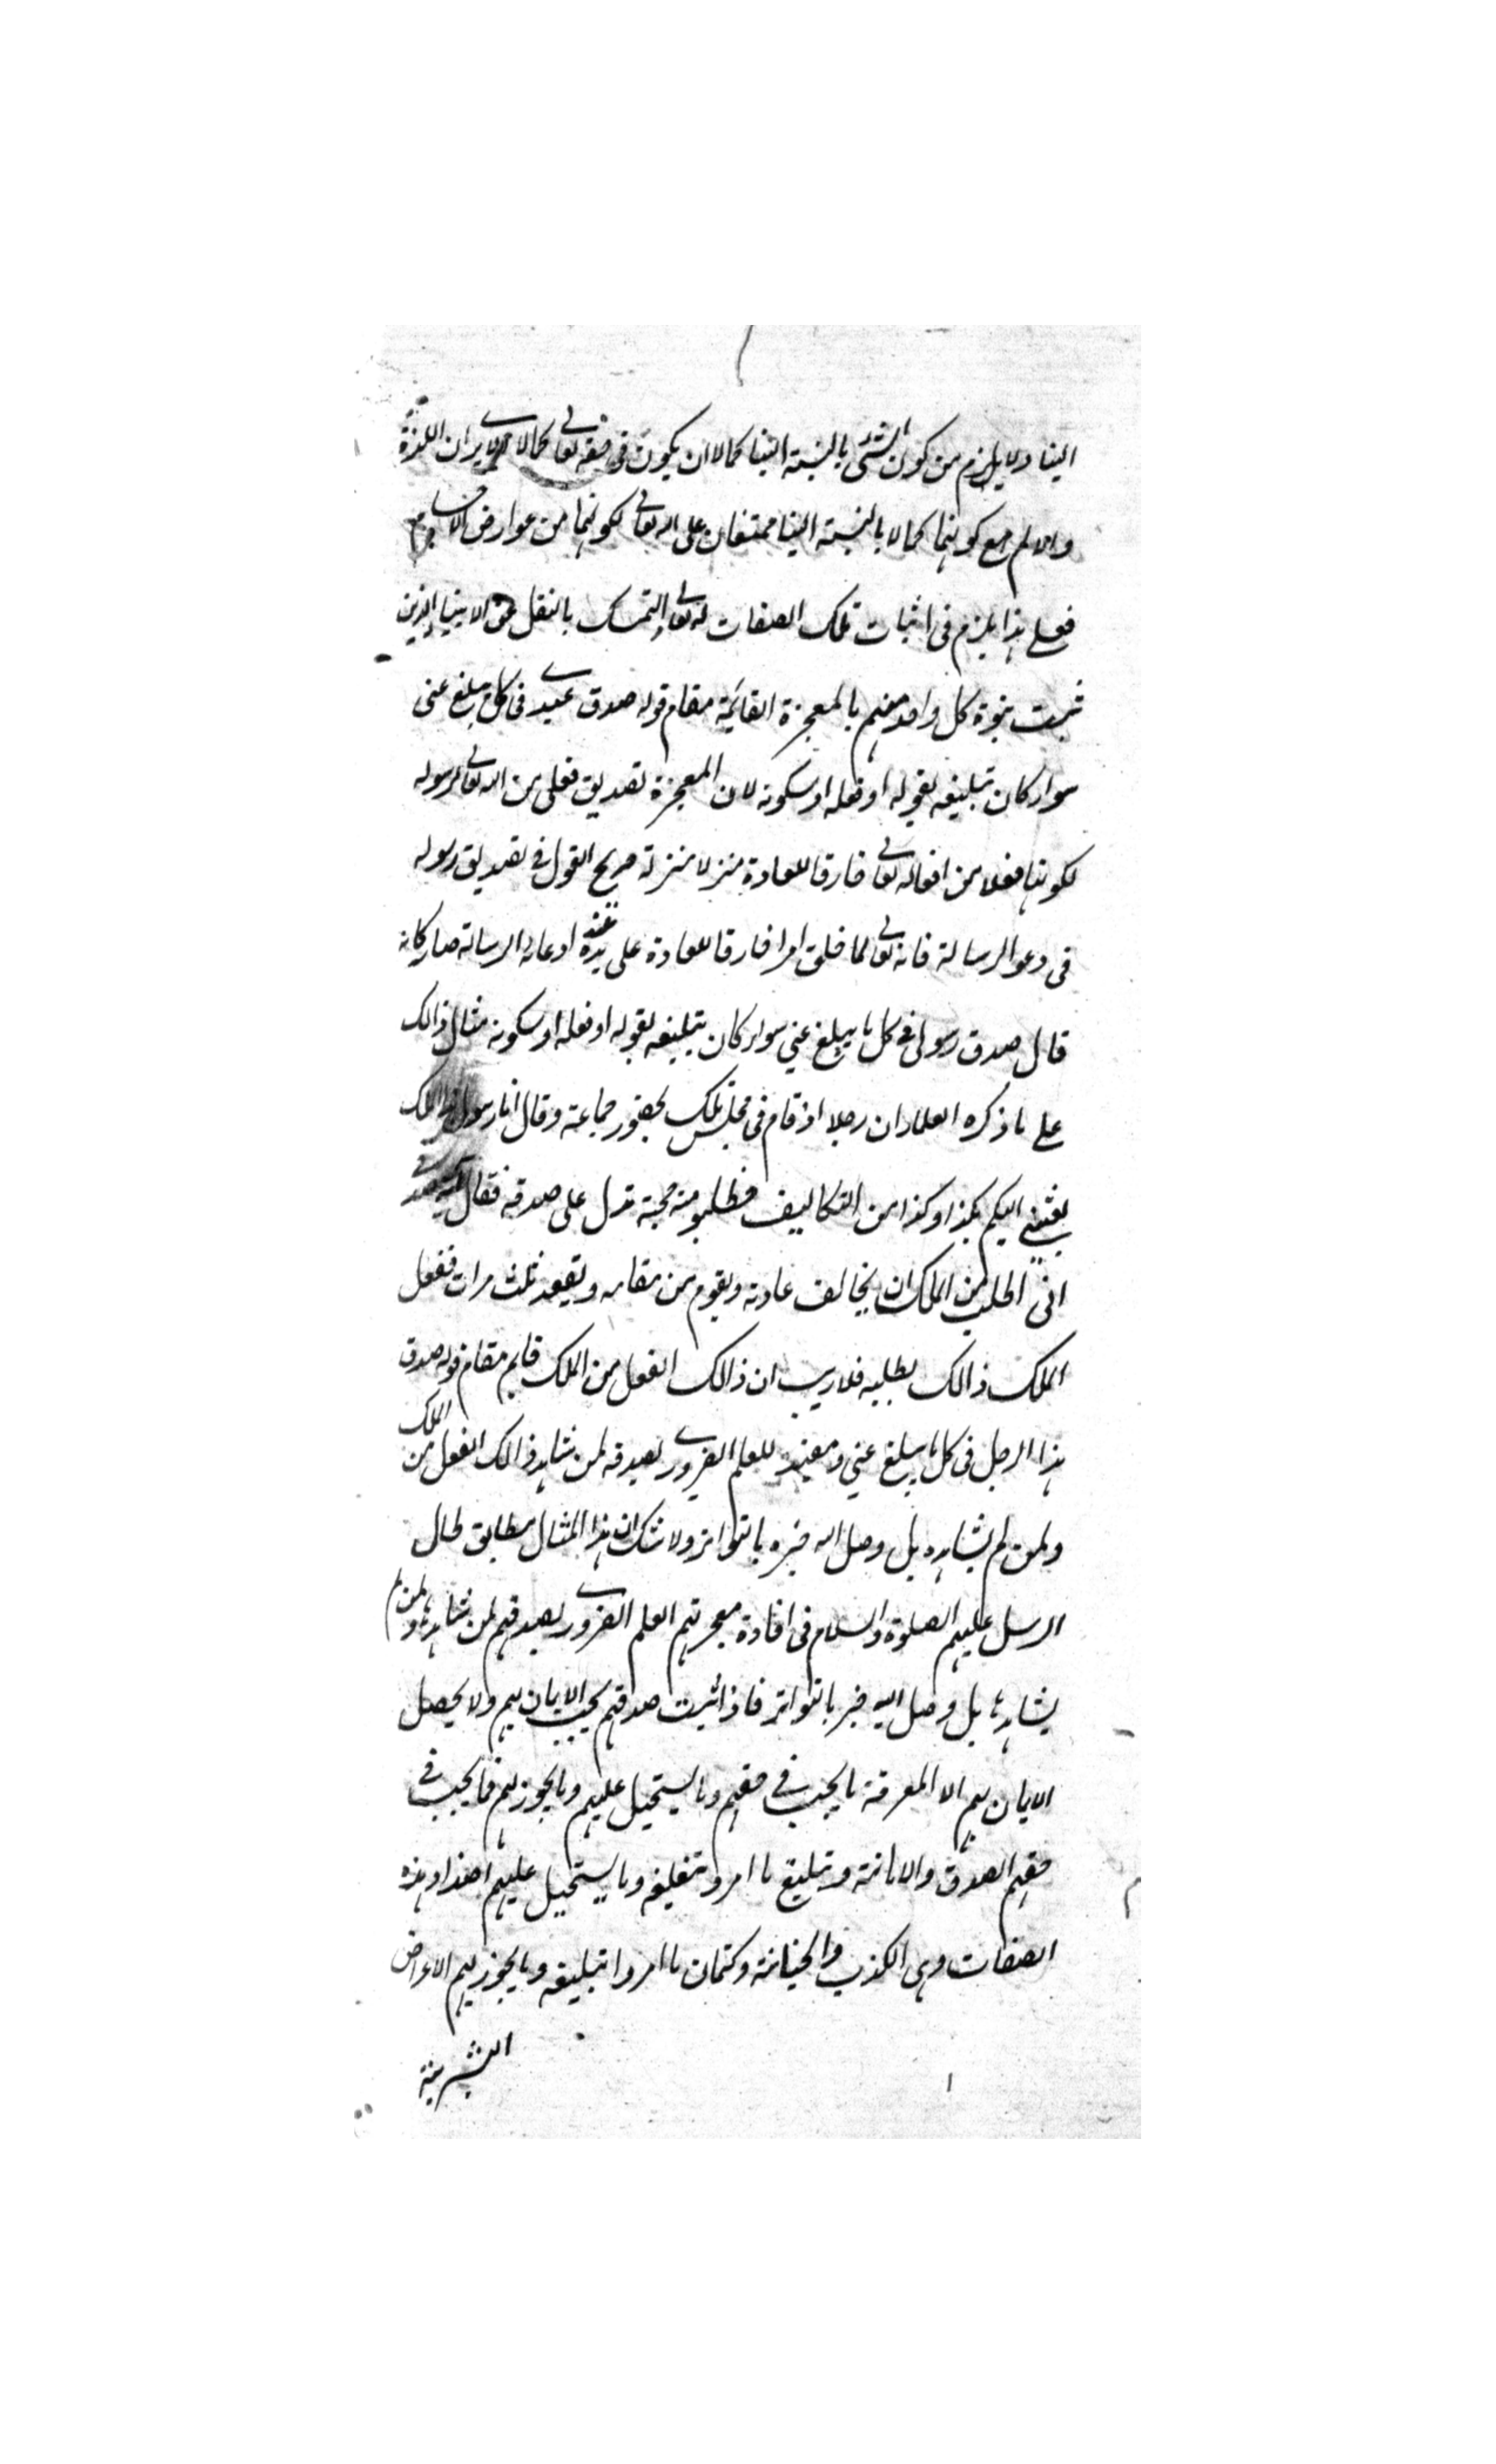 الينا ولا يلزم من كون الشئ بالنسبة الينا كمالا ان يكون في حقه تعالى كمالا الا يرى ان اللذة
والالم مع كونهما كمالا بالنسبة الينا ممتنعان على الله تعالى لكونهما من عوارض الاجسام
فعلى هذا يلزم في اثبات تلك الصفات له تعالى التمسك بالنقل عن الانبياء الذين
ثبت نبوة كل واحد منهم بالمعجزة القائمة مقام قوله صدق عبدي في كل يبلغ عني
سواء كان تبليغه بقوله او فعله او سكوته لان المعجزة تصديق فعلي من الله تعالى لرسوله
لكونها فعلا من افعاله تعالى خارقا للعادة منزلا منزلة صريح القول في تصديق رسوله
في دعو الرسالة فانه تعالى لما خلق امرا خارقا للعادة على يده عند ادعائه الرسالة صار كانه
قال صدق رسولي في كل ما يبلغ عني سواء كان تبليغه بقوله او فعله او سكوته مثال ذالك
على ما ذكره العلماء ان رجلا اذ قام في مجلس ملك بحضور جماعة وقال انا رسول هذا الملك
بعثني اليكم بكذا وكذا من التكاليف فطلبو منه حجة تدل على صدقه فقال
اني اطلب من الملك ان يخالف عادته ويقوم من مقامه ويقعد ثلث مرات ففعل
الملك ذالك بطلبه فلا ريب ان ذالك الفعل من الملك قايم مقام قوله صدق
هذا الرجل في كل ما يبلغ عني ومفيد للعلم الضروري بصدقه لمن شاهد ذالك الفعل من الملك
ولمن لم يشاهده بل وصل اليه خبره بالتواتر ولا شك ان هذا المثال مطابق لحال
الرسل عليهم الصلوة والسلام في افادة معجزتهم العلم الضروري بصدقهم لمن شاهدها ولمن لم
يشاهدها بل وصل اليه خبر بالتواتر فاذا ثبت صدقهم يجب الايمان بهم ولا يحصل
الايمان بهم الا المعرفة ما يجب في حقهم وما يستحيل عليهم وما يجوز لهم فما يجب في
حقهم الصدق والامانة وتبليغ ما امروا بتبليغه وما يستحيل عليهم اضداد هذه
الصفات وهي الكذب والخيانة وكتمان ما امروا بتبليغه وما يجوز لهم الاعراض
البشرية